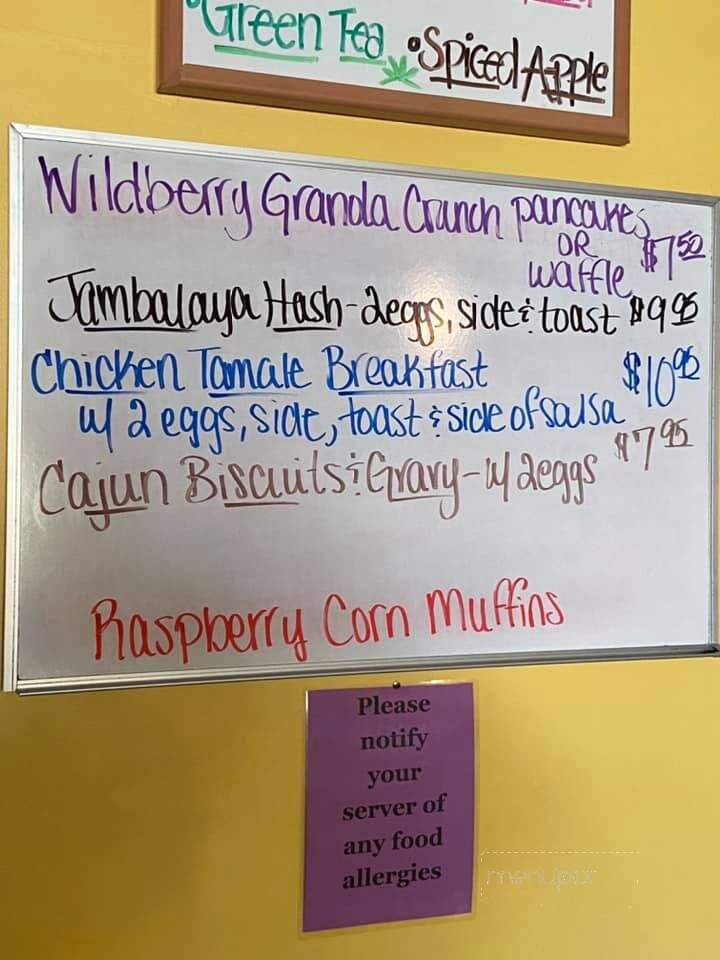 Green Tea •Spiced Apple
Wildberry Granola Crunch pancakes
OR
waffle $7 50
Jambalaya Hash - 2 eggs, side & toast $9 95
Chicken Tamale Breakfast
w/ 2 eggs, side, toast & side of salsa $10 95
Cajun Biscuits & Gravy - w/ 2 eggs $7 95
Raspberry Corn Muffins
Please
notify
your
server of
any food
allergies
menupix